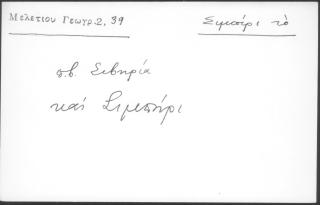 Μελετίου Γεωγρ. 2, 39
Σιμπίρι τὸ
π.β. Σιβηρία
καὶ Σιμπίρι